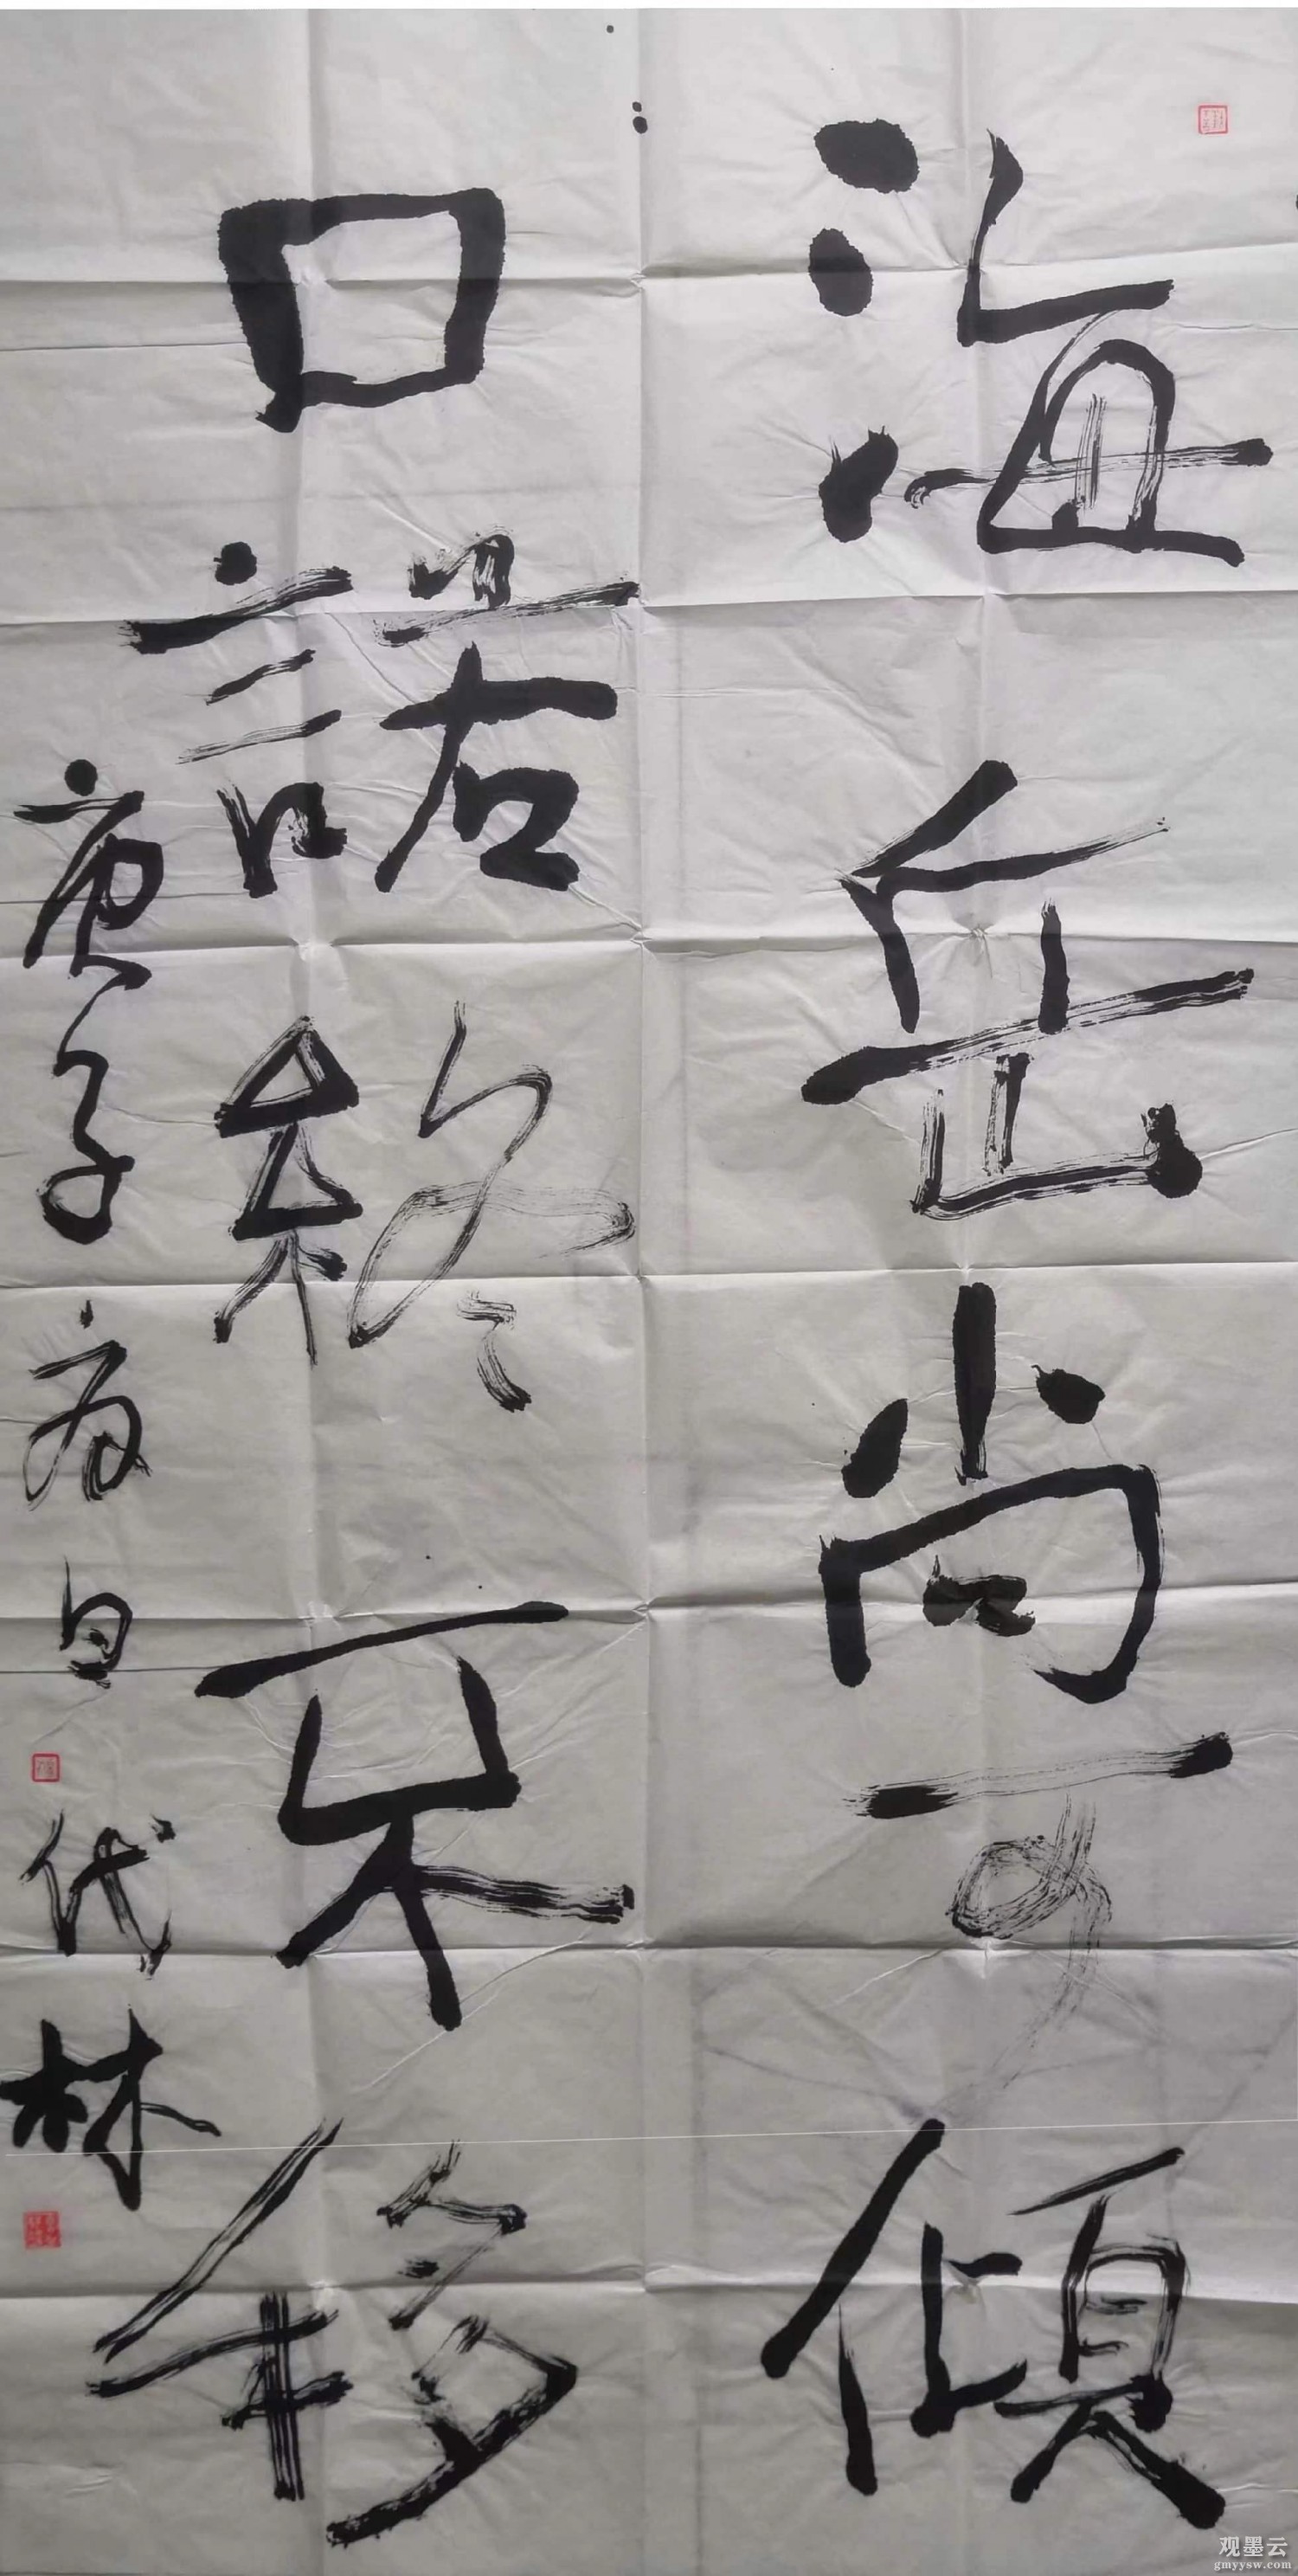 海岳尚可傾
口諾終不移
庚子夏日代林
观墨云
gmyysw.com